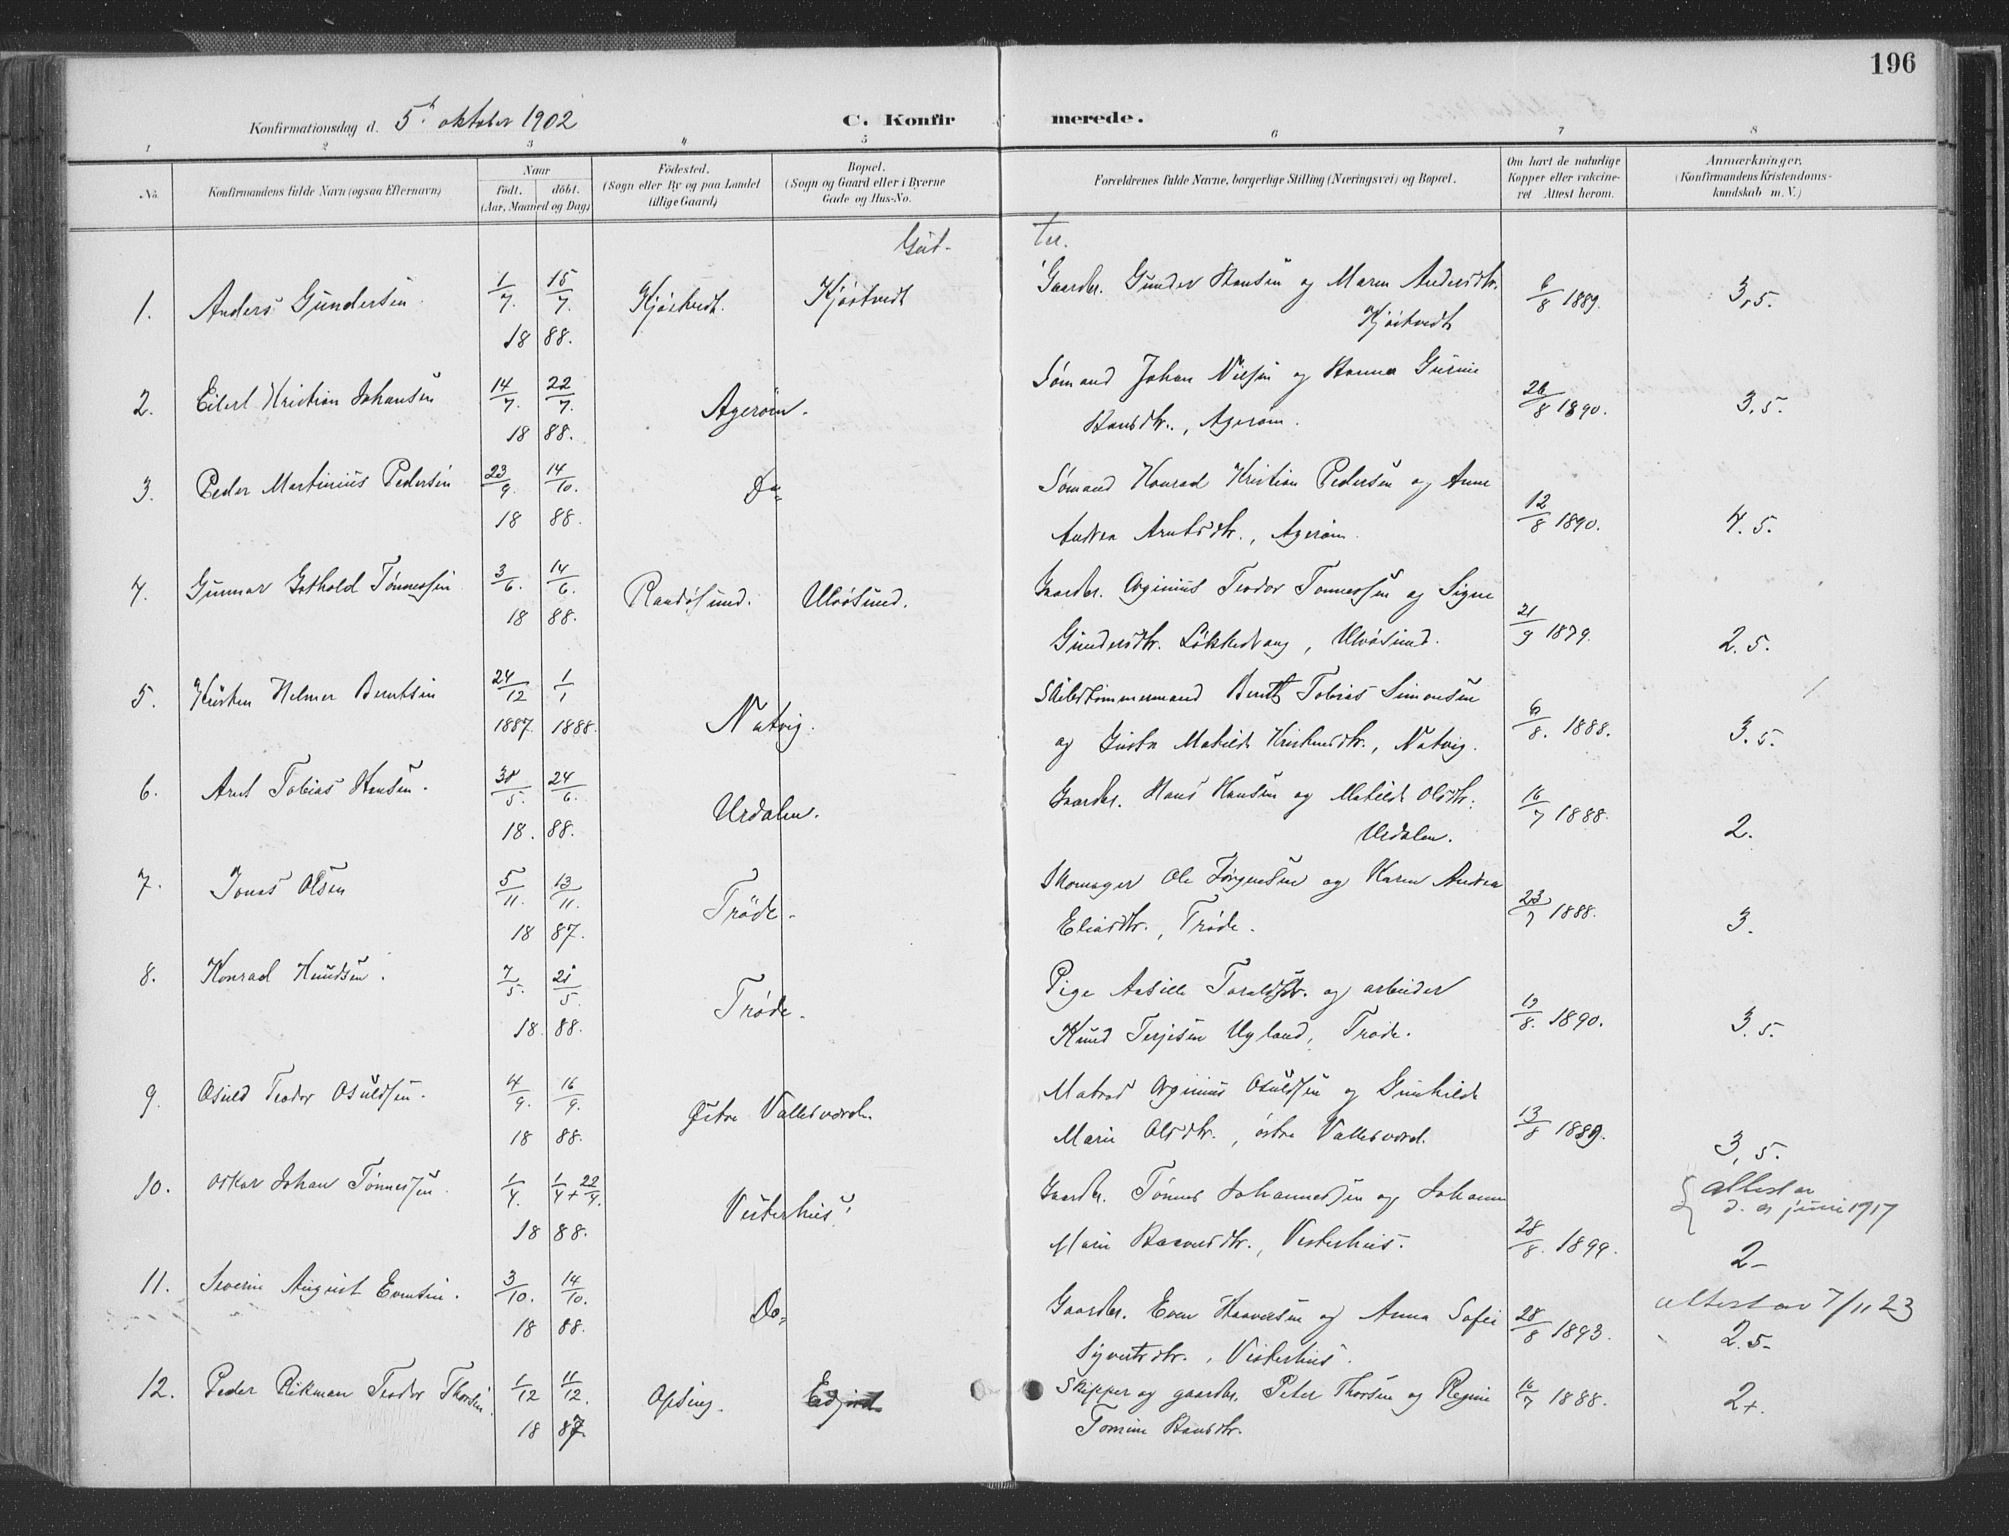 196
Konfirmationsdag d. 5t oktober 1902 C. Konfirmerede.
1 2 3 4 5 6 7 8
No. Konfirmandens fulde Navn (ogsaa Efternavn) Naar født. døbt. (Aar, Maaned og Dag) Fødested. (Sogn eller By og paa Landet tillige Gaard) Bopæl. (Sogn og Gaard eller i Byerne Gade og Hus-No. Forældrenes fulde Navne, borgerlige Stilling (Næringsvei) og Bopæl. Om havt de naturlige Kopper eller vakcineret Attest herom. Anmærkninger. (Konfirmandens Kristendomskundskab m. V.)
Gut- ter.
1. Anders Gundersen 1/7. 15/7. Kjøstvedt. Kjøstvedt Gaardbr. Gunder Hansen og Maren Andersdtr. 6/8 1889. 3,5.
18 88. Kjøstvedt
2. Eilert Kristian Johansen 14/7. 22/7. Agerøen. Sømand Johan Nilsen og Hanna Gurine 26/8 1890. 3.5.
18 88. Hansdtr., Agerøen.
3. Peder Martinius Pedersen 23/9. 14/10. Do Sømand Konrad Kristian Pedersen og Anne 12/8 1890. 4.5.
18 88. Andrea Arntsdtr., Agerøen.
4. Gunnar Gothold Tønnessen 3/6. 14/6. Randøsund. Ulvøsund. Gaardbr. Orginius Teodor Tønnessen og Signe 21/9 1879.
18 88. Gundersdtr. Løkkedvang, Ulvøsund. 2.5.
5. Kristen Helmer Berntsen 24/12 1/1 Natvig. Skibstømmermand Bernt Tobias Simonsen 6/8. 1888.
1887. 1888. og Gusta Matilde Kristensdtr., Natvig. 3.5.
6. Arnt Tobias Hansen. 30/5. 24/6. Urdalen. Gaardbr. Hans Hansen og Matilde Olsdtr. 16/7 1888.
18. 88. Urdalen. 2.
7. Jonas Olsen 5/11. 13/11. Trøde. Skomager Ole Jørgensen og Karen Andrea 23/7 1888.
18 87. Eliasdtr., Trøde. 3.
8. Konrad Knudsen. 7/5. 21/5. Trøde. Pige Aasille Taraldsdtr. og arbeider 19/8. 1890.
18. 88. Knud Terjesen Ugland, Trøde. 3.5.
9. Osuld Teodor Osuldsen. 4/9. 16/9. Østre Vallesværd. Matros Orginius Osuldsen og Gunhilde 13/8 1889.
18 88. Marie Olsdtr., østre Vallesværd. 3,5.
10. Oskar Johan Tønnessen. 1/4. 1/4 + 22/4. Vesterhus. Gaardbr. Tønnes Johannessen og Johanne attest av
d. 9 juni 1917
18 88. Marie Haavesdtr., Vesterhus. 28/8. 1899. 2-
11. Severin August Evensen. 3/10. 14/10. Do. Gaardbr. Even Haavesen og Anna Sofie 28/8 1893. attest av 7/11 23
18 88. Syvertsdtr., Vesterhus. 2.5-
12. Peder Rikman Teodor Thorsen. 1/12 11/12. Ofsing. Skipper og gaardbr. Peter Thorsen og Regine 16/7 1888. 2+.
18 87. Tomine Hansdtr.